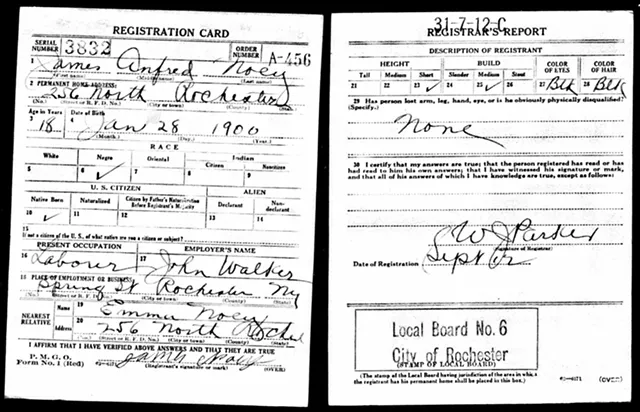 REGISTRATION CARD
SERIAL NUMBER 3832 ORDER NUMBER A-456
1 James Anfred Noey
(First name) (Middle name) (Last name)
2 PERMANENT HOME ADDRESS:
256 North Rochester
(No.) (Street or R. F. D. No.) (City or town) (County) (State)
Age in Years Date of Birth
3 18 4 Jan 28 1900
(Month.) (Day.) (Year.)
RACE
White Negro Oriental Indian
Citizen Noncitizen
5 6 ✓ 7 8 9
U. S. CITIZEN ALIEN
Native Born Naturalized Citizen by Father's Naturalization Before Registrant's Majority Declarant Non-declarant
10 ✓ 11 12 13 14
15
If not a citizen of the U. S., of what nation are you a citizen or subject?
PRESENT OCCUPATION EMPLOYER'S NAME
16 Laborer 17 John Walker
18 PLACE OF EMPLOYMENT OR BUSINESS:
Spring St Rochester NY
(No.) (Street or R. F. D. No.) (City or town) (County) (State)
NEAREST RELATIVE Name 19 Emma Noey
Address 20 256 North Roches
(No.) (Street or R. F. D. No.) (City or town) (County) (State)
I AFFIRM THAT I HAVE VERIFIED ABOVE ANSWERS AND THAT THEY ARE TRUE
P. M. G. O.
Form No. 1 (Red) James Noey
(Registrant's signature or mark) (OVER)
31-7-12-C
REGISTRAR'S REPORT
DESCRIPTION OF REGISTRANT
HEIGHT BUILD COLOR OF EYES COLOR OF HAIR
Tall Medium Short Slender Medium Stout
21 22 23 ✓ 24 25 ✓ 26 27 Blk 28 Blk
29 Has person lost arm, leg, hand, eye, or is he obviously physically disqualified?
(Specify.)
None
30 I certify that my answers are true; that the person registered has read or has
had read to him his own answers; that I have witnessed his signature or mark,
and that all of his answers of which I have knowledge are true, except as follows:
W J Parker
(Signature of Registrar)
Date of Registration Sept 12
Local Board No. 6
City of Rochester
(STAMP OF LOCAL BOARD)
(The stamp of the Local Board having jurisdiction of the area in which
the registrant has his permanent home shall be placed in this box.)
(OVER)